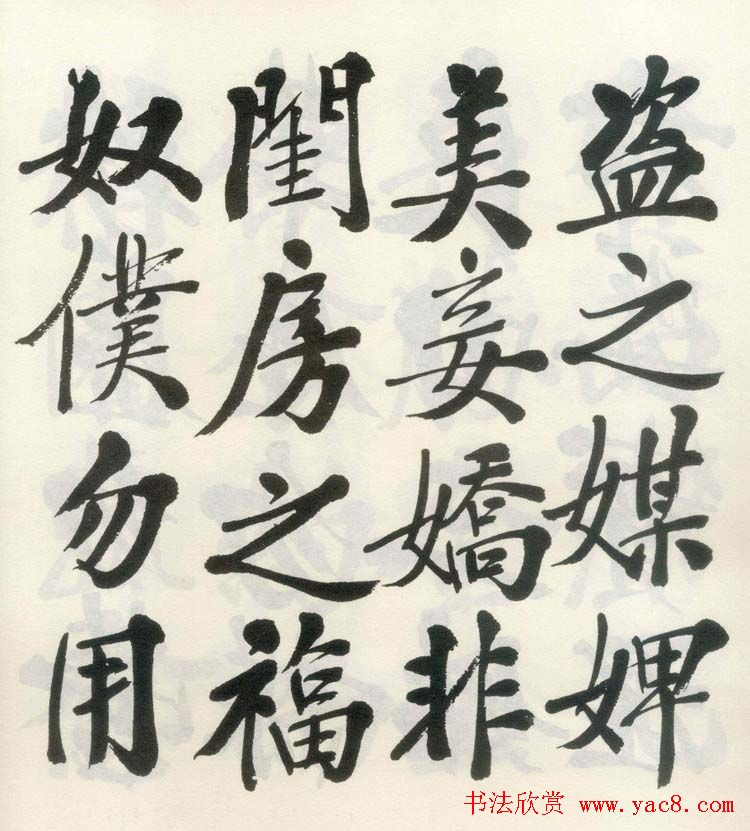 盗之媒婢
美妾嬌非
閨房之福
奴僕勿用
书法欣赏 www.yac8.com